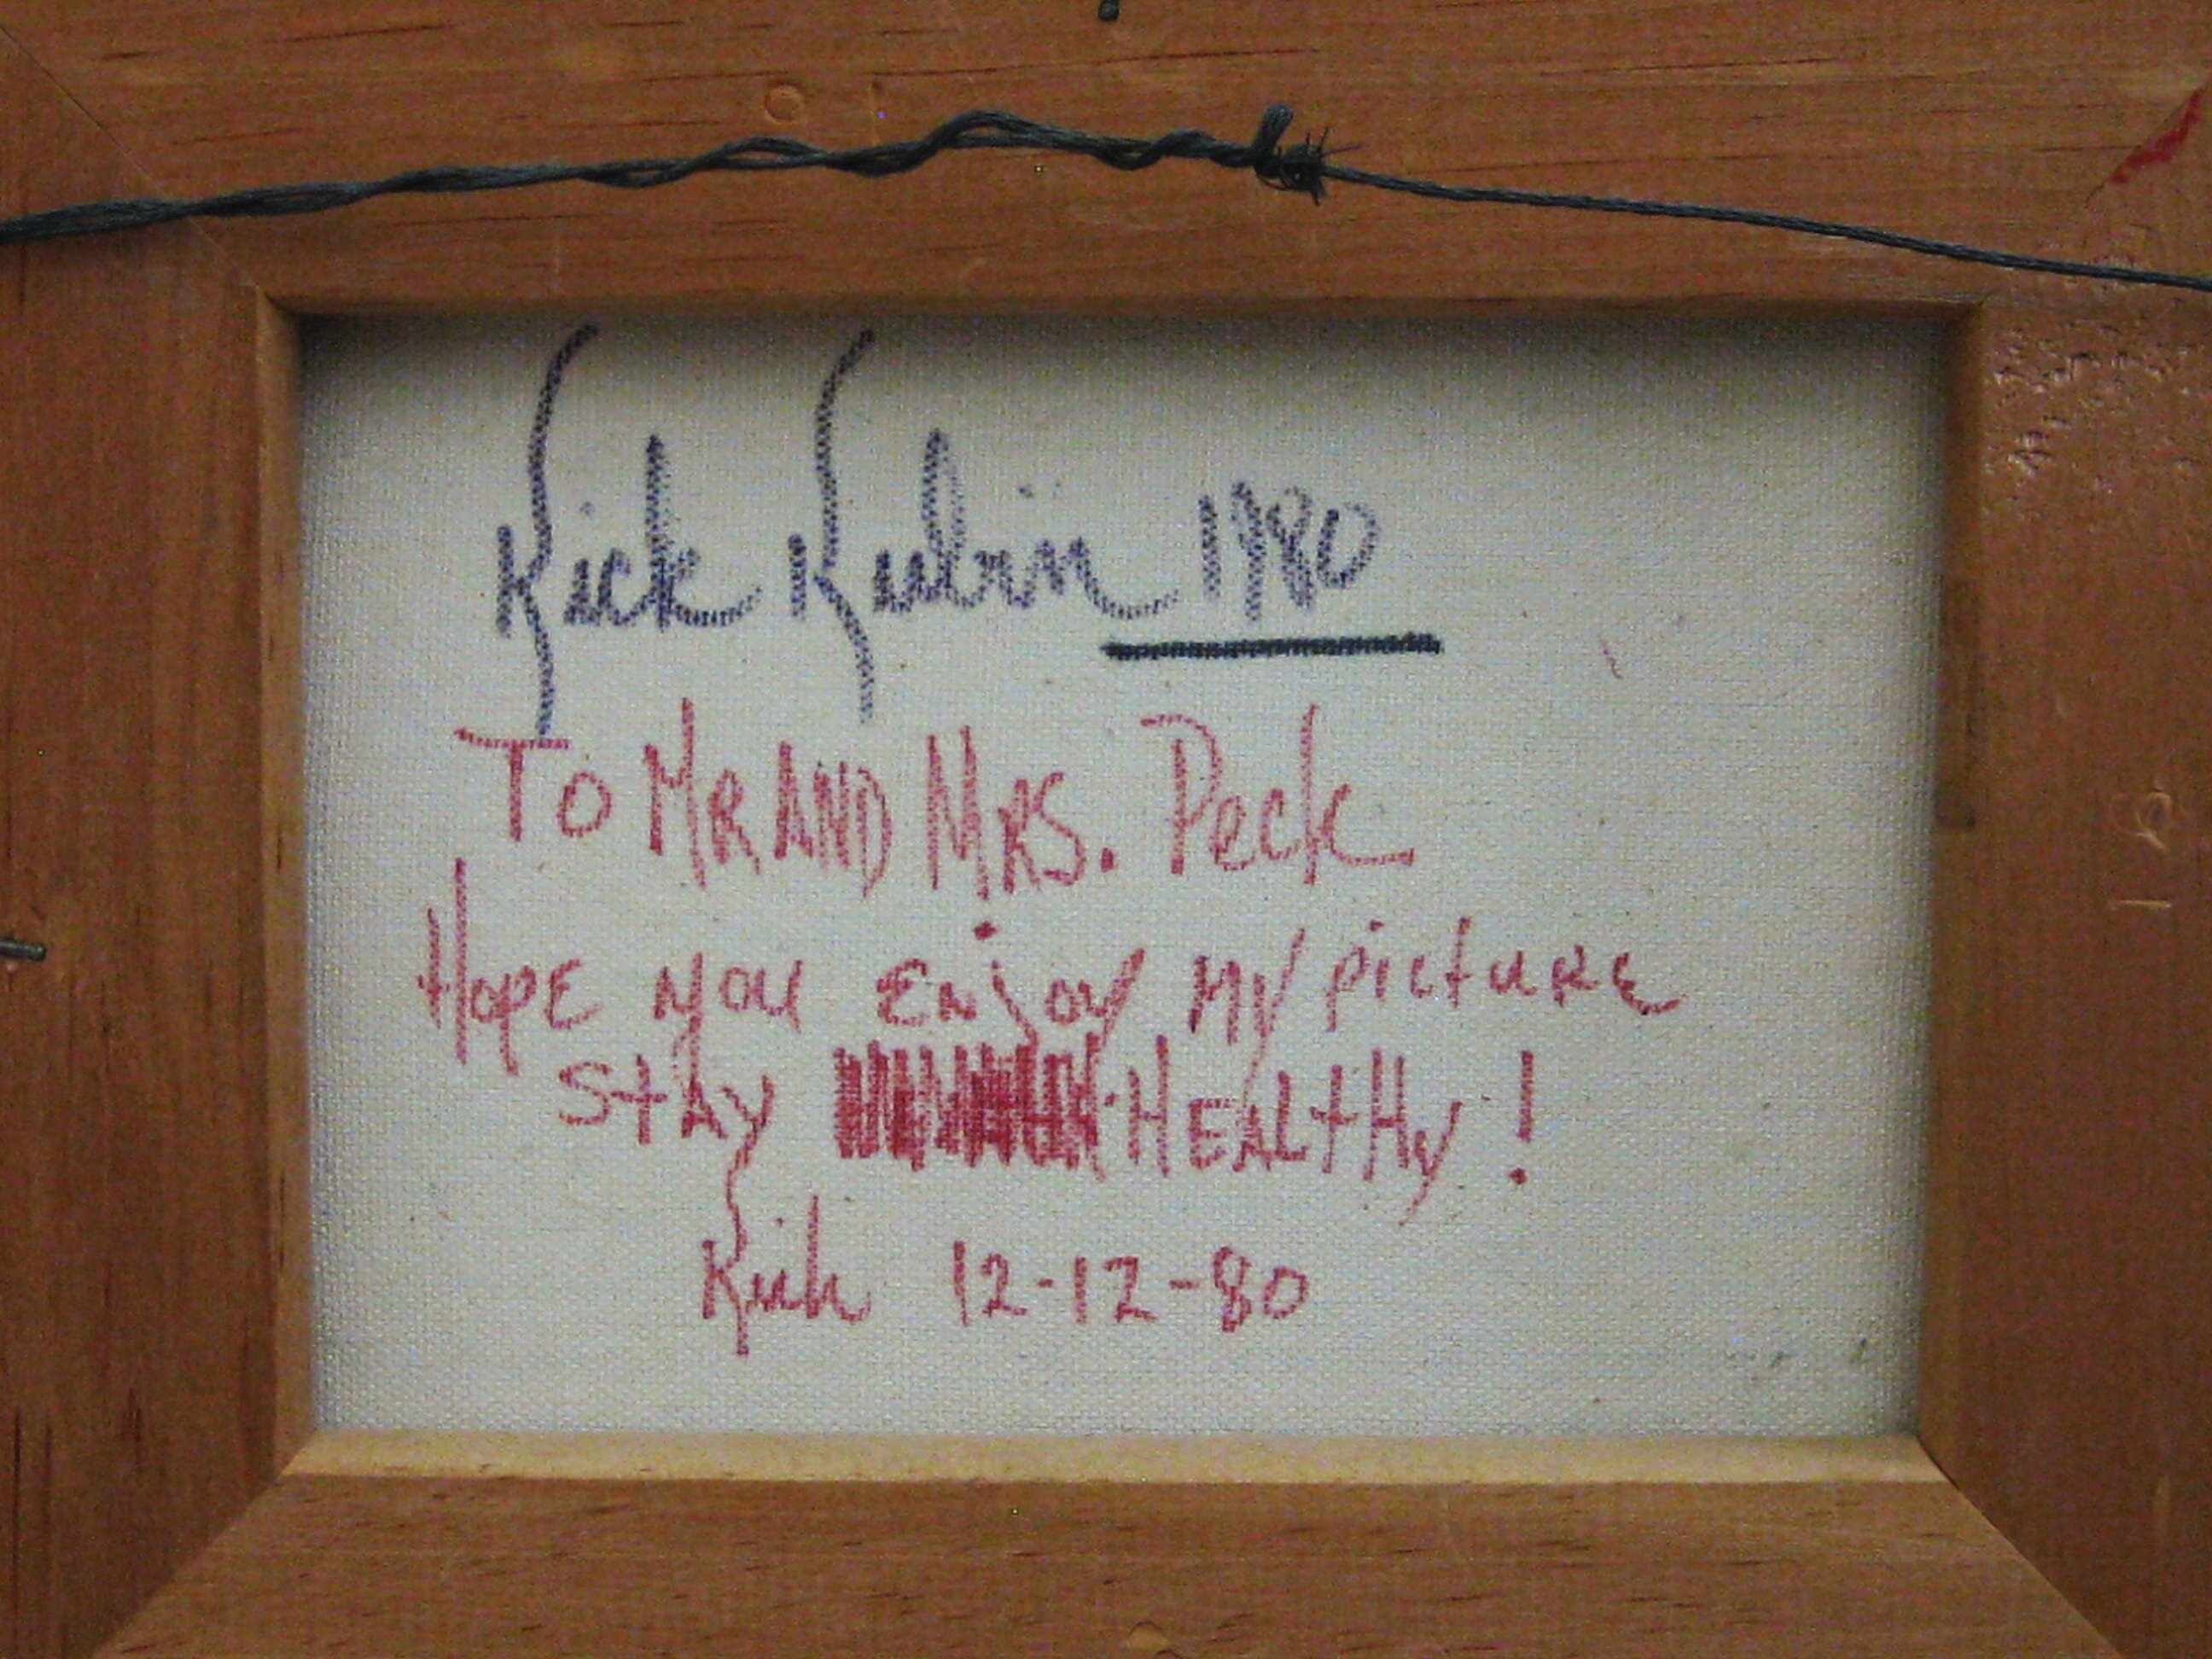 Rick Rubin 1980
To MR AND MRS. Peck
HOPE you ENjoy MY pictuRE
StAy HEALtHy!
Rick 12-12-80